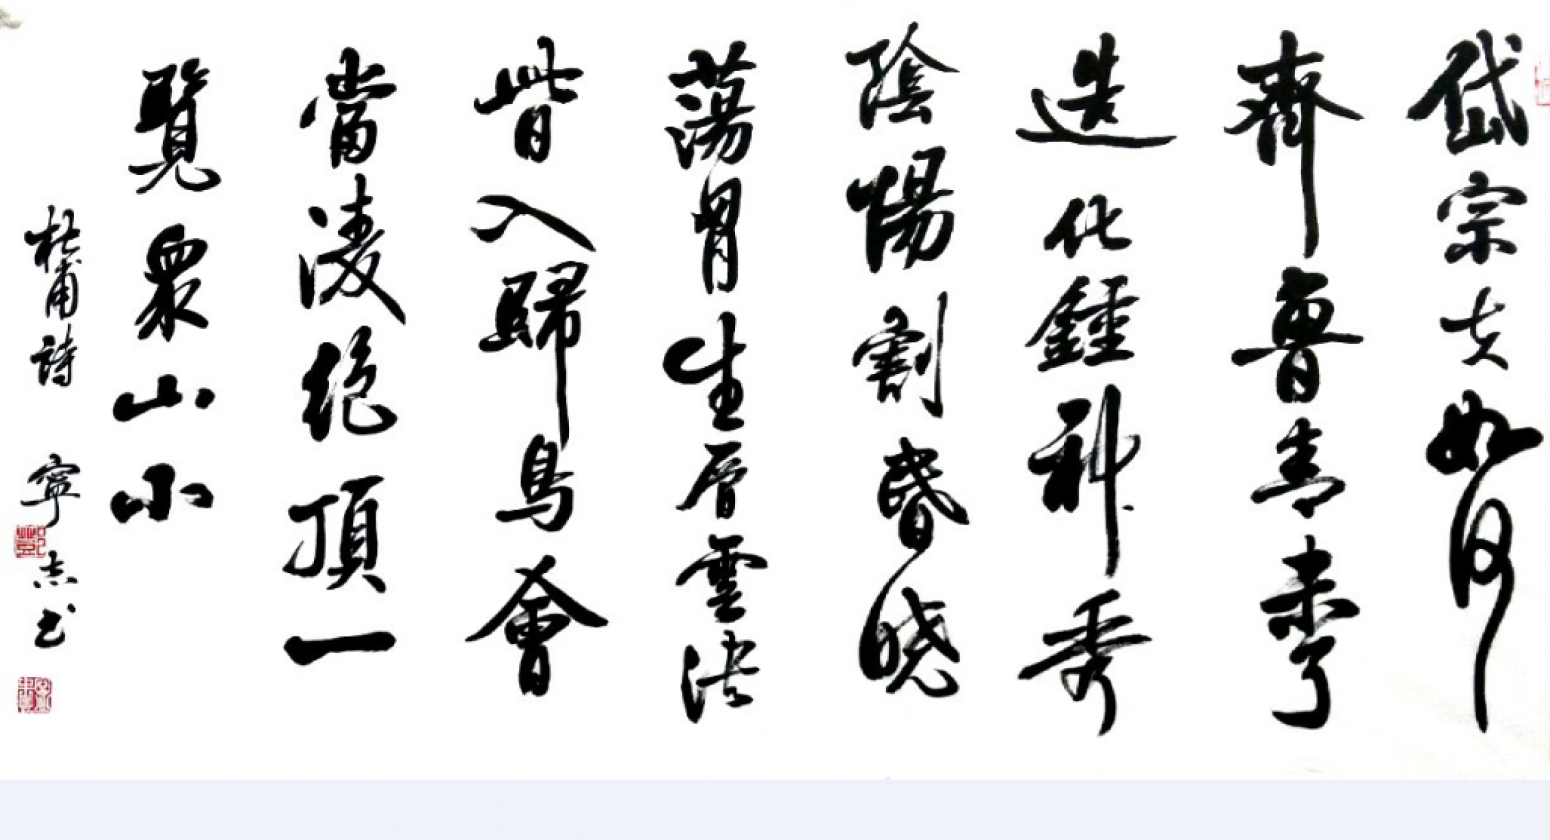 岱宗夫如何
齊魯青未了
造化鍾神秀
陰陽割昬曉
蕩胷生層雲決
眥入歸鳥會
當淩絕頂一
覽眾山小
杜甫詩 寧志书